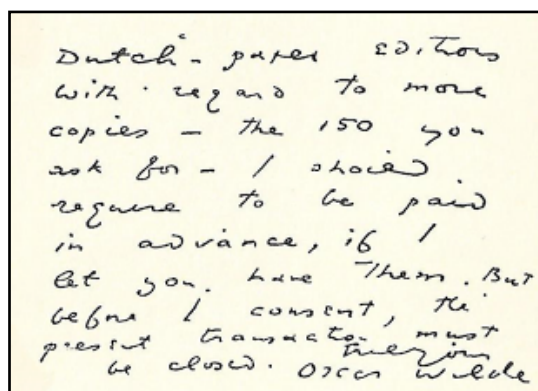 Dutch-paper editions
with regard to more
copies - the 150 you
ask for - I should
require to be paid
in advance, if I
let you have them. But
before I consent, the
present transaction must
be closed. Oscar Wilde